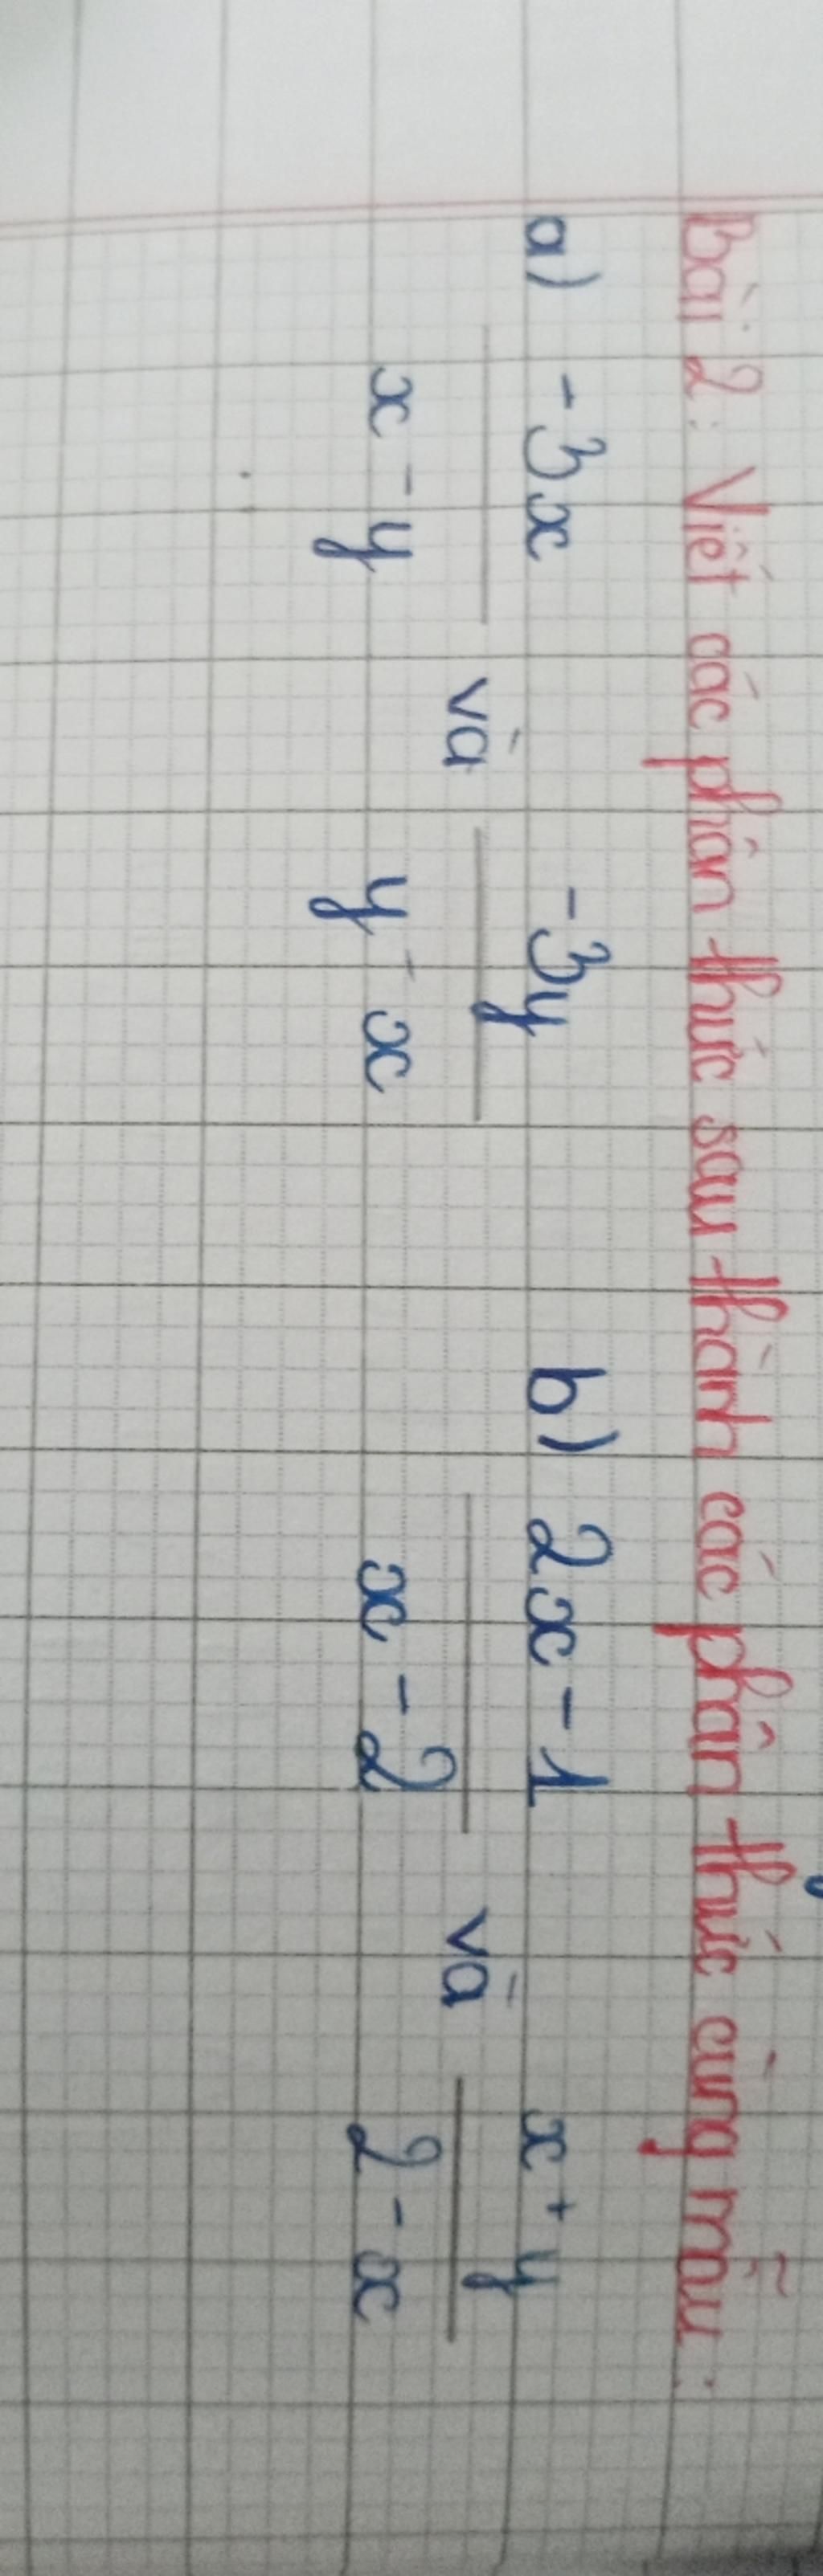 Bài 2: Viết các phân thức sau thành các phân thức cùng mẫu:
a) -3x / x - y và -3y / y - x b) 2x - 1 / x - 2 và x + y / 2 - x